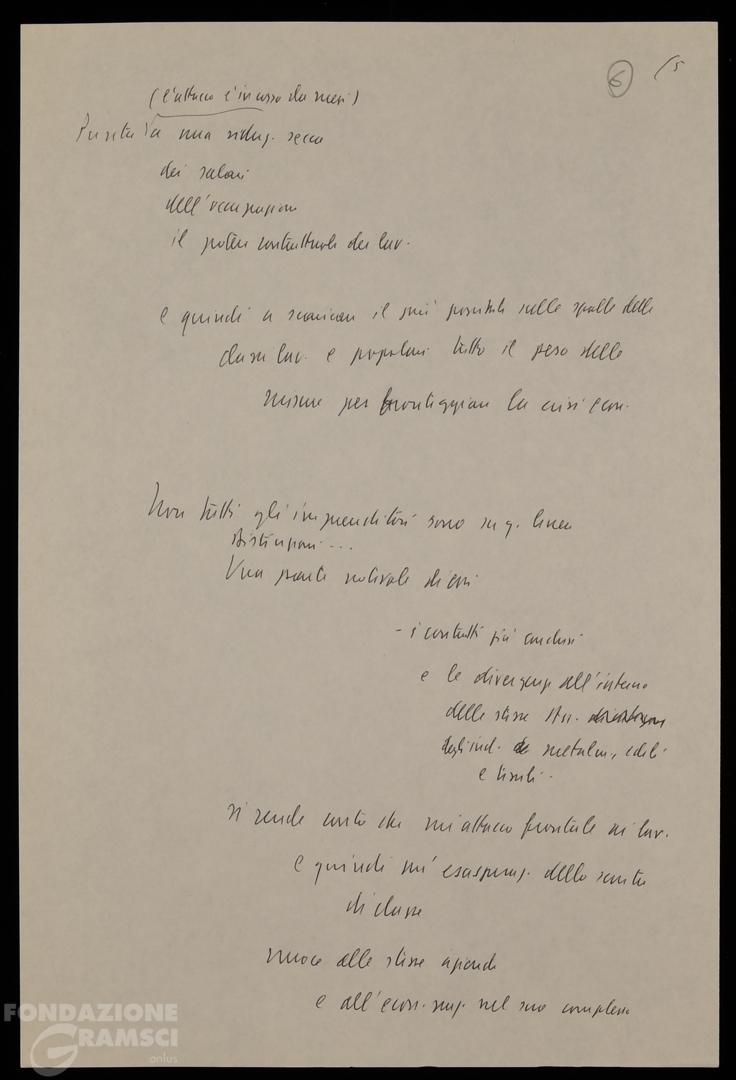 6 /5
(l'attacco è in corso da mesi)
Punta a una riduz. secca
dei salari
dell'occupazione
il potere contrattuale dei lav.
e quindi a scaricare il più possibile sulle spalle delle
classi lav. e popolari tutto il peso delle
misure per fronteggiare la crisi econ.
Non tutti gli imprenditori sono su q. linea
Distinzioni ...
Una parte notevole di essi
- i contratti già conclusi
e le divergenze all'interno
delle stesse Ass.
degli ind. metalm., edili
e tessili.
si rende conto che un attacco frontale ai lav.
e quindi un'esasperaz. dello scontro
di classe
nuoce alle stesse aziende
e all'econ. naz. nel suo complesso
FONDAZIONE
GRAMSCI
onlus